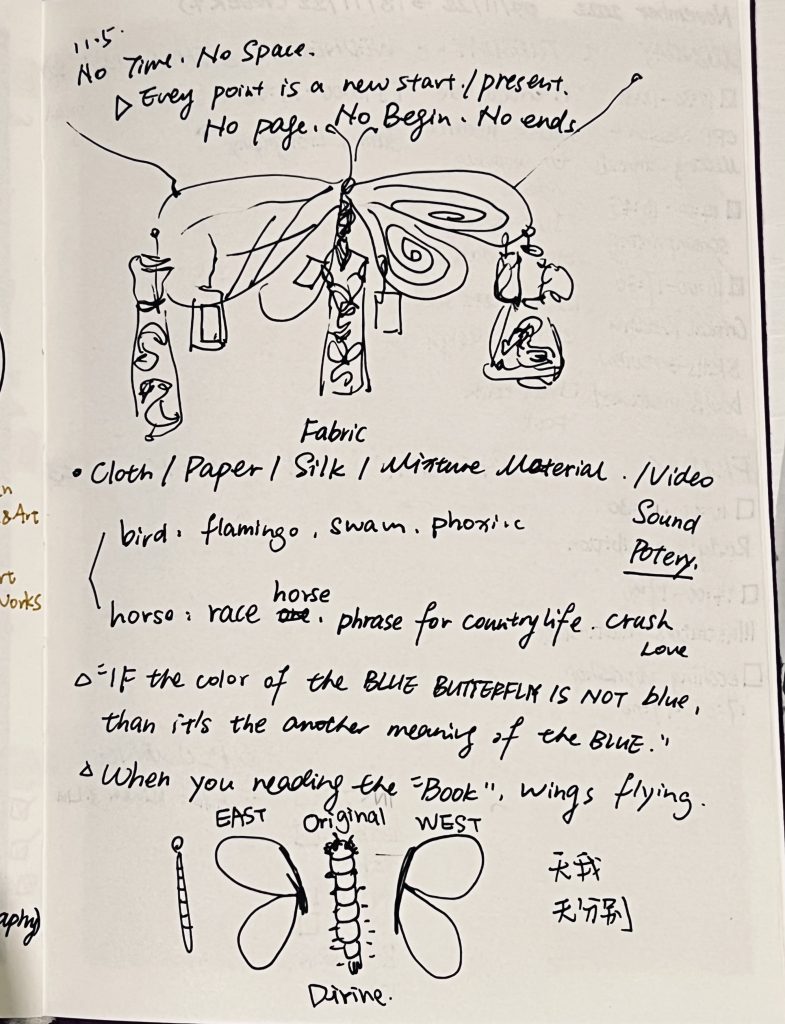 11.5.
No Time. No Space.
▷ Every point is a new start./present.
No page. No Begin. No ends
Fabric
• Cloth / Paper / Silk / Mixture Material. /Video
Sound
Potery.
bird: flamingo. swam. phoxi.c
horse
horse: race. phrase for country life. crush
Love
△ "IF the color of the BLUE BUTTERFLY IS NOT blue,
than it's the another meaning of the BLUE."
△ When you reading the "Book", wings flying.
EAST Original WEST
无我
无分别
Dirine.
n
&Art
rt
Works
aphy)